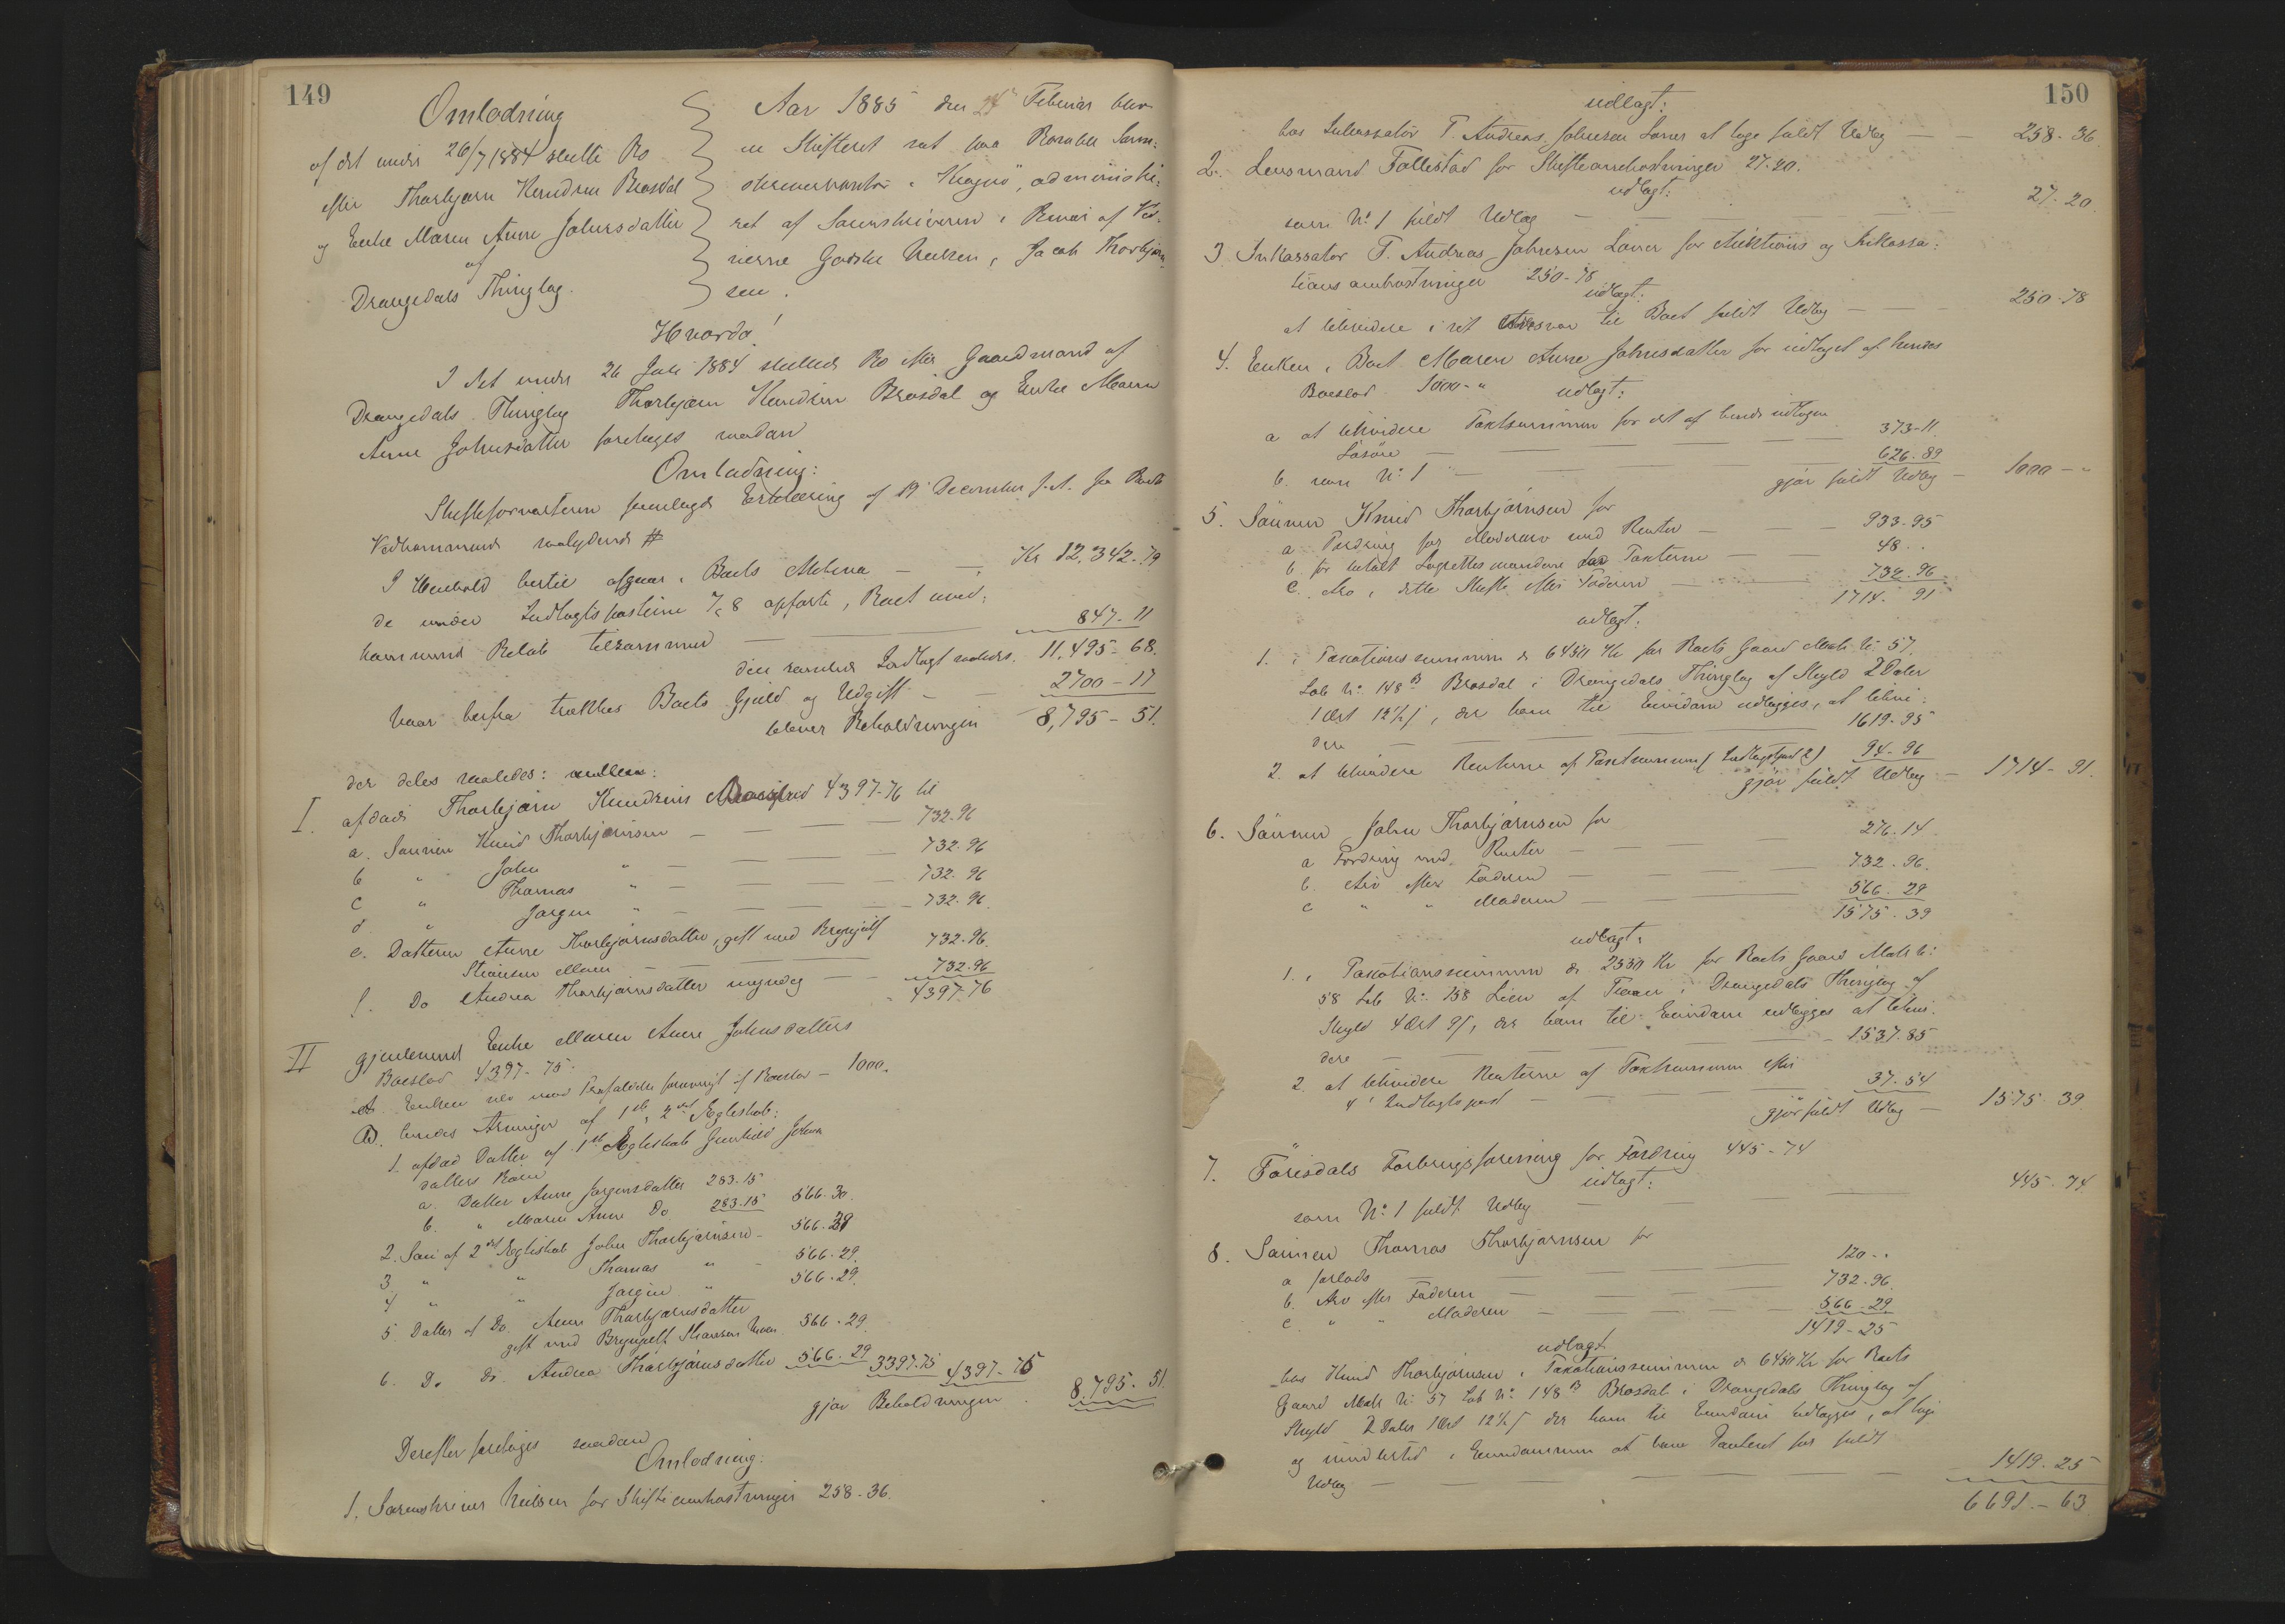 149
Omlodning
af det under 26/7 1884 slutte Bo
efter Thorbjørn Knudsen Brøsdal
og Enke Maren Anne Johnsdatter
af
Drangedals Thinglag.
Aar 1885 den 24 Februar blev
en Skifteret sat paa Bamble Soren-
skriverkontor i Kragerø, administre-
ret af Sorenskriveren i Nærvær af Vid-
nerne Jacob Thorbjørn-
sen.
Hvorda!
I det under 26 Juli 1884 sluttede Bo efter Gaardmand af
Drangedals Thinglag Thorbjørn Knudsen Brøsdal og Enke Maren
Anne Johnsdatter foretages saadan
Omlodning:
Skifteforvalteren fremlagde Erklæring af 19 December f.A. fra Boets
Vedkommende saalydende #
I Henhold hertil afgaar i Boets Activa — — Kr 12,342.79
de under Indtægtsposterne 7 & 8 opførte, Boet uved-
kommende Beløb tilsammen — — 847 - 11
den samlede Indtægt saaledes. 11,495 - 68.
hvor herfra trækkes Boets Gjæld og Udgift — — 2700 - 17
bliver Beholdningen 8,795 - 51.
der deles saaledes: mellem:
I. afdøde Thorbjørn Knudsens 4397-76 til
a. Sønnen Knud Thorbjørnsen — — — 732.96
b " John " — — — 732.96
c " Thomas " — — — 732.96
d. " Jørgen " — — — 732.96
e. Datteren Anne Thorbjørnsdatter, gift med Brynjulf
Moen — — 732.96.
f. Do Andrea Thorbjørnsdatter umyndig — — 732.96
4397.76
II gjenlevende Enke Maren Anne Johnsdatters
Boeslod 4397-75.
A. Enken selv af Boeslod — 1000.
B. hendes Arvinger af 1ste & 2det Egteskab:
1. afdød Datter af 1ste Egteskab Gunhild Johns
datters Børn
a. Datter Anne Jørgensdatter 283.15
b. " Maren Anne Do 283.15 566.30.
2. Søn af 2det Egteskab John Thorbjørnsen — 566.29
3 " " Thomas " — 566.29.
4 " " Jørgen " 566.29.
5. Datter af Do. Anne Thorbjørnsdatter
gift med Brynjulf Moen 566.29
6. Do Do. Andrea Thorbjørnsdatter 566.29 3397.75 4397-75
gjør Beholdningen 8.795.51.
Derefter foretages saadan
Omlodning:
1. Sorenskriver Nielsen for Skifteomkostninger 258.36.
150
udlagt:
hos Inkassator T. Andreas Johnsen at tage fuldt Udlæg — — 258-36
2. Lensmand Tallestad for Skifteomkostninger 27.20.
udlagt:
som No 1 fuldt Udlæg — — — 27-20.
3 Inkassator T. Andreas Johnsen for Auktions og Inkassa-
tions omkostninger 250-78
udlagt:
at likvidere i sit Ansvar til Boet fuldt Udlæg — — 250.78
4. Enken i Boet Maren Anne Johnsdatter for udlaget af hendes
Boeslod 1000-" udlagt:
a at likvidere Taxtsummen for det af hende udtagne
Løsøre — — — 373-11.
b. som No 1 — — — 626.89
gjør fuldt Udlæg — 1000 - "
5. Sønnen Knud Thorbjørnsen for
a Fordring for Mødrearv med Renter — — — 933.95
b. for betalt Lagrettesmændene for Taxterne — — 48..
c. Arv i dette Skifte efter Faderen — — 732.96
1714.91
udlagt:
1. i Taxationssummen a 6450 Kr for Boets Gaard Matr. No 57.
Løb No. 148 B Brøsdal i Drangedals Thinglag af Skyld 2 Daler
1 Ort 12 1/2 ß, der ham til Eiendom udlægges, at likvi-
dere — — — 1619-95
2. at likvidere Renterne af Taxtsummen (Indtægtspost 2) 94-96
gjør fuldt Udlæg — 1714-91.
6. Sønnen John Thorbjørnsen for
a Fordring med Renter — — — 276.14
b. Arv efter Faderen — — — 732.96.
c " " Moderen — — — 566.29
1575.39
udlagt:
1. i Taxationssummen a 2550 Kr for Boets Gaard Matr. No:
58 Løb No. 158 Lien af i Drangedals Thinglag af
Skyld 4 Ort 9ß, der ham til Eiendom udlægges at likvi-
dere — — — 1537.85
2. at likvidere Renterne af Taxtsummen efter
4' Indtægtspost — — — 37.54
gjør fuldt Udlæg — 1575.39.
7. Tørisdals Forbrugsforening for Fordring 445-74
udlagt:
som No 1 fuldt Udlæg — — — 445.74
8. Sønnen Thomas Thorbjørnsen for
a forlods — — — 120-.
b. Arv efter Faderen — — — 732.96.
c. " " Moderen — — — 566-29.
1419-25
udlagt
hos Knud Thorbjørnsen i Taxationssummen a 6450 Kr for Boets
Gaard Matr. No: 57 Løb No. 148 B Brøsdal i Drangedals Thinglag af
Skyld 2 Daler 1 Ort 12 1/2 ß der ham til Eiendom udlægges, at tage
og imidlertid i Eiendommen at have Panteret for fuldt
Udlæg — — — 1419-25
6691-63